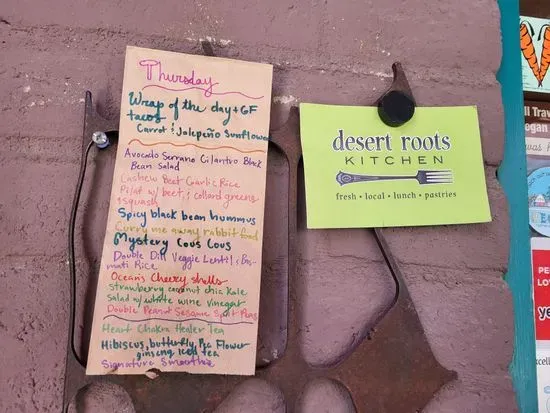 Thursday
Wrap of the day + GF
tacos
Carrot & Jalepeño Sunflower
Avocado Serrano Cilantro Black
Bean Salad
Cashew Beet Garlic Rice
Pilaf w/ beet, & collard greens
& squash
Spicy black bean hummus
Curry me away rabbit food
Mystery Cous Cous
Double Dill Veggie Lentil & Bas-
mati Rice
Ocean's Cheezy shells
Strawberry coconut chia Kale
Salad w/ white wine vinegar
Double Peanut Sesame Split Peas
Heart Chakra Healer Tea
Hibiscus, butterfly Pea Flower
ginseng iced tea
Signature Smoothie
desert roots
KITCHEN
fresh • local • lunch • pastries